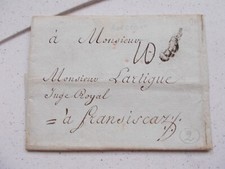 à Monsieur
Monsieur Lartigue
Juge Royal
= à fransiscazs